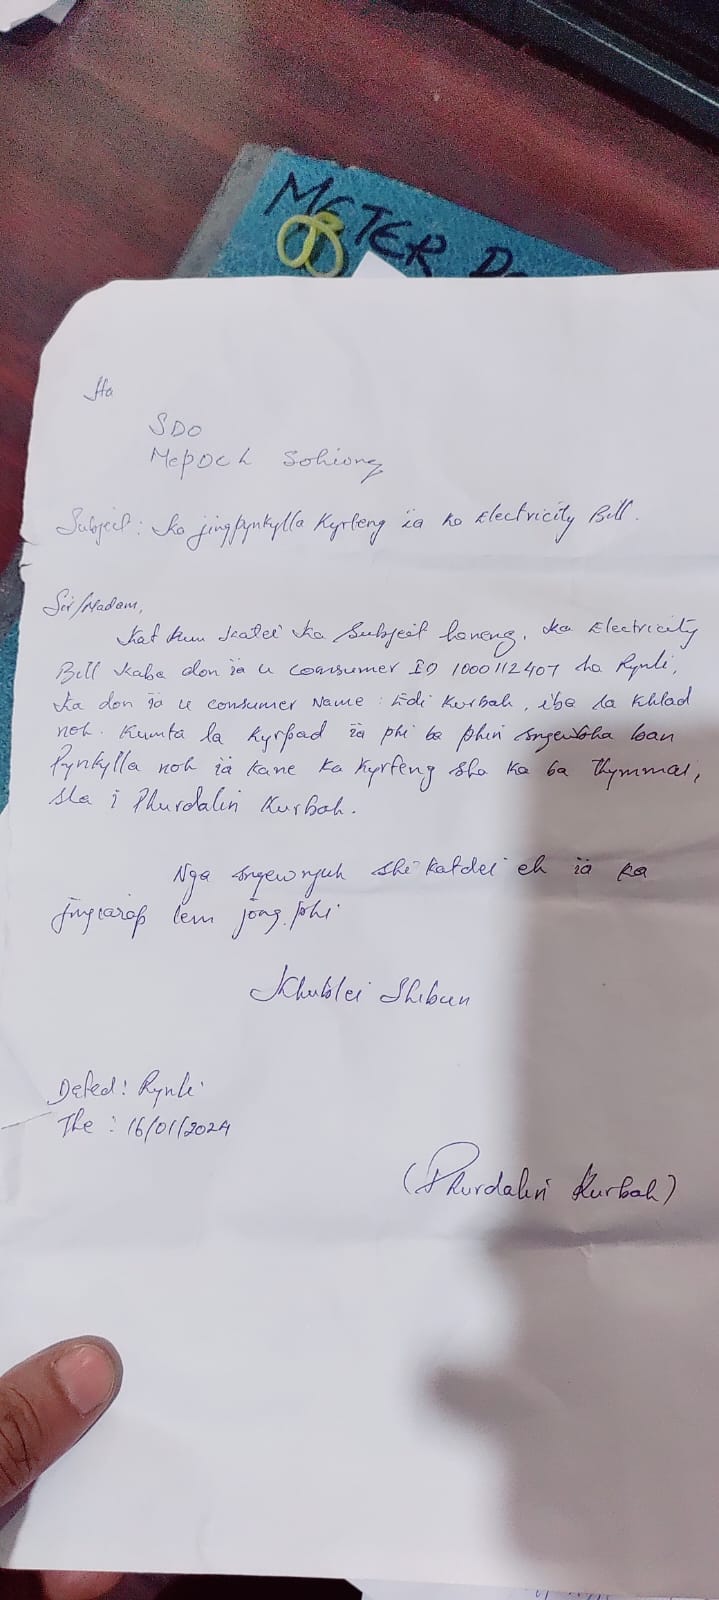 METER
Ha
SDO
Mepdcl Sohiong
Subject: Ka jingpynkylla Kyrteng ïa ka Electricity Bill.
Sir/Madam,
Kat kum katei ka Subject haneng, ka Electricity
Bill kaba don ïa u consumer ID 1000112407 ha Rynli,
ka don ïa u consumer Name : Edi Kurbah, iba la khlad
noh. Kumta la kyrpad ïa phi ba phin sngewbha ban
Pynkylla noh ïa kane ka Kyrteng sha ka ba Thymmai,
sha i Phurdalin Kurbah.
Nga sngewnguh shi katdei eh ïa ka
jingïarap lem jong phi
Khublei Shibun
Dated: Rynli
The : 16/01/2024
(Phurdalin Kurbah)